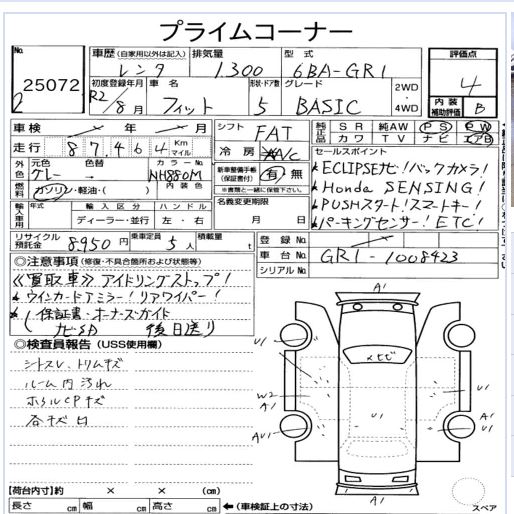 プライムコーナー
No.
25072
2
車歴 (自家用以外は記入) 排気量 型式
レンタ 1,300 6BA-GR1
初度登録年月 車名 形状・ドア数 グレード 2WD
R2/8月 フィット 5 BASIC 4WD
評価点
4
内装補助評価 B
車検 年 月
走行 87464 Km マイル
シフト FAT
冷房 A/C
純正品 SR 純AW PS PW
カワ TV ナビ エアB
外色 元色 色替 カラーNo.
グレー NH880M
燃料 ガソリン・軽油・( ) 内装色
新車整備手帳(保証書付) 有・無
※書類と一緒に保管下さい。
セールスポイント
★ECLIPSEナビ!バックカメラ!
★Honda SENSING!
★PUSHスタート!スマートキー!
★パーキングセンサー!ETC!
輸入車用 年式 輸入区分 ハンドル
ディーラー・並行 左・右
名義変更期限
月 日
リサイクル預託金 8,950円 乗車定員 5人 積載量 t
登録No.
車台No. GR1-1008423
シリアルNo.
◎注意事項 (修復・不具合箇所および状態等)
《買取車》アイドリングストップ!
★ウインカードアミラー!リアワイパー!
★(保証書・オーナーズガイド
ナビSD 後日送り
◎検査員報告 (USS使用欄)
シートスレ、トリムキズ
ルーム内汚れ
ホイルCPキズ
各キズ凹
A1
U1
U1
メモビ
W2
A1
U1
U1
AU1
A1
A1
スペア
【荷台内寸】約 × × (cm)
長さ cm 幅 cm 高さ cm ←(車検証上の寸法)